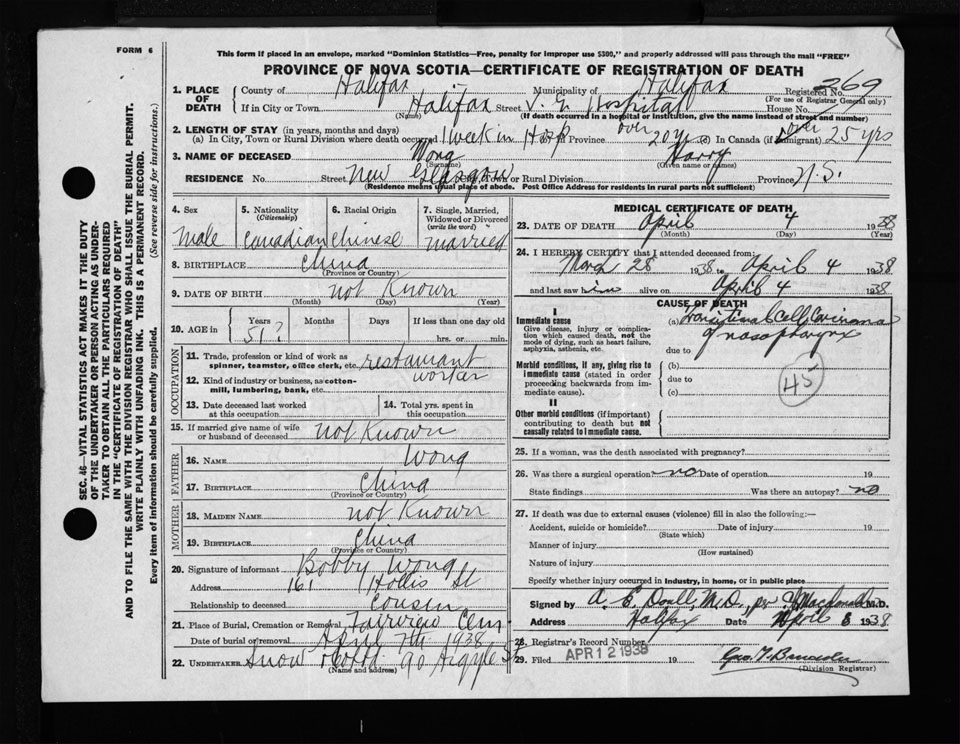 FORM 6
This form if placed in an envelope, marked "Dominion Statistics—Free, penalty for improper use $300," and properly addressed will pass through the mail "FREE"
PROVINCE OF NOVA SCOTIA—CERTIFICATE OF REGISTRATION OF DEATH
SEC. 46—VITAL STATISTICS ACT MAKES IT THE DUTY
OF THE UNDERTAKER OR PERSON ACTING AS UNDER-
TAKER TO OBTAIN ALL THE PARTICULARS REQUIRED
IN THE "CERTIFICATE OF REGISTRATION OF DEATH"
AND TO FILE THE SAME WITH THE DIVISION REGISTRAR WHO SHALL ISSUE THE BURIAL PERMIT.
WRITE PLAINLY WITH UNFADING INK. THIS IS A PERMANENT RECORD.
Every item of information should be carefully supplied. (See reverse side for instructions.)
1. PLACE OF DEATH County of Halifax Municipality of Halifax Registered No. 269
(For use of Registrar General only)
If in City or Town Halifax Street V. G. Hospital House No.
(Name) (If death occurred in a hospital or institution, give the name instead of street and number)
2. LENGTH OF STAY (in years, months and days)
(a) In City, Town or Rural Division where death occurred 1 week in Hosp in Province over 20 yrs (c) In Canada (if immigrant) over 25 yrs
3. NAME OF DECEASED Wong Harry
(Surname) (Given name or names)
RESIDENCE No. Street New Glasgow City, Town or Rural Division Province N.S.
(Residence means usual place of abode. Post Office Address for residents in rural parts not sufficient)
4. Sex Male
5. Nationality (Citizenship) Canadian
6. Racial Origin Chinese
7. Single, Married, Widowed or Divorced (write the word) married
8. BIRTHPLACE China
(Province or Country)
9. DATE OF BIRTH not Known
(Month) (Day) (Year)
10. AGE in Years Months Days If less than one day
51? hrs. or min.
OCCUPATION
11. Trade, profession or kind of work as spinner, teamster, office clerk, etc. restaurant
12. Kind of industry or business, as cotton-mill, lumbering, bank, etc. worker
13. Date deceased last worked at this occupation
14. Total yrs. spent in this occupation
15. If married give name of wife or husband of deceased not Known
FATHER
16. NAME Wong
17. BIRTHPLACE China
(Province or Country)
MOTHER
18. MAIDEN NAME not Known
19. BIRTHPLACE China
(Province or Country)
20. Signature of informant Bobby Wong
Address 161 Hollis St
Relationship to deceased cousin
21. Place of Burial, Cremation or Removal Fairview Cem
Date of burial or removal April 7th 1938
22. UNDERTAKER Snow & Co Ltd. 90 Argyle St
(Name and address)
MEDICAL CERTIFICATE OF DEATH
23. DATE OF DEATH April 4 1938
(Month) (Day) (Year)
24. I HEREBY CERTIFY that I attended deceased from:
March 28 1938 to April 4 1938
and last saw him alive on April 4 1938
CAUSE OF DEATH
I
Immediate cause
Give disease, injury or complication which caused death, not the mode of dying, such as heart failure, asphyxia, asthenia, etc.
(a) Transitional Cell Carcinoma
of nasopharynx
due to
Morbid conditions, if any, giving rise to immediate cause (stated in order proceeding backwards from immediate cause).
(b)
due to
(c)
45
II
Other morbid conditions (if important) contributing to death but not causally related to immediate cause.
25. If a woman, was the death associated with pregnancy?
26. Was there a surgical operation? no Date of operation 19
State findings Was there an autopsy? no
27. If death was due to external causes (violence) fill in also the following:—
Accident, suicide or homicide? Date of injury 19
(State which)
Manner of injury
(How sustained)
Nature of injury
Specify whether injury occurred in industry, in home, or in public place
Signed by A. E. Doull, M.D. per Macdonald M.D.
Address Halifax Date April 1938
28. Registrar's Record Number
29. Filed APR 12 1938 19
(Division Registrar)